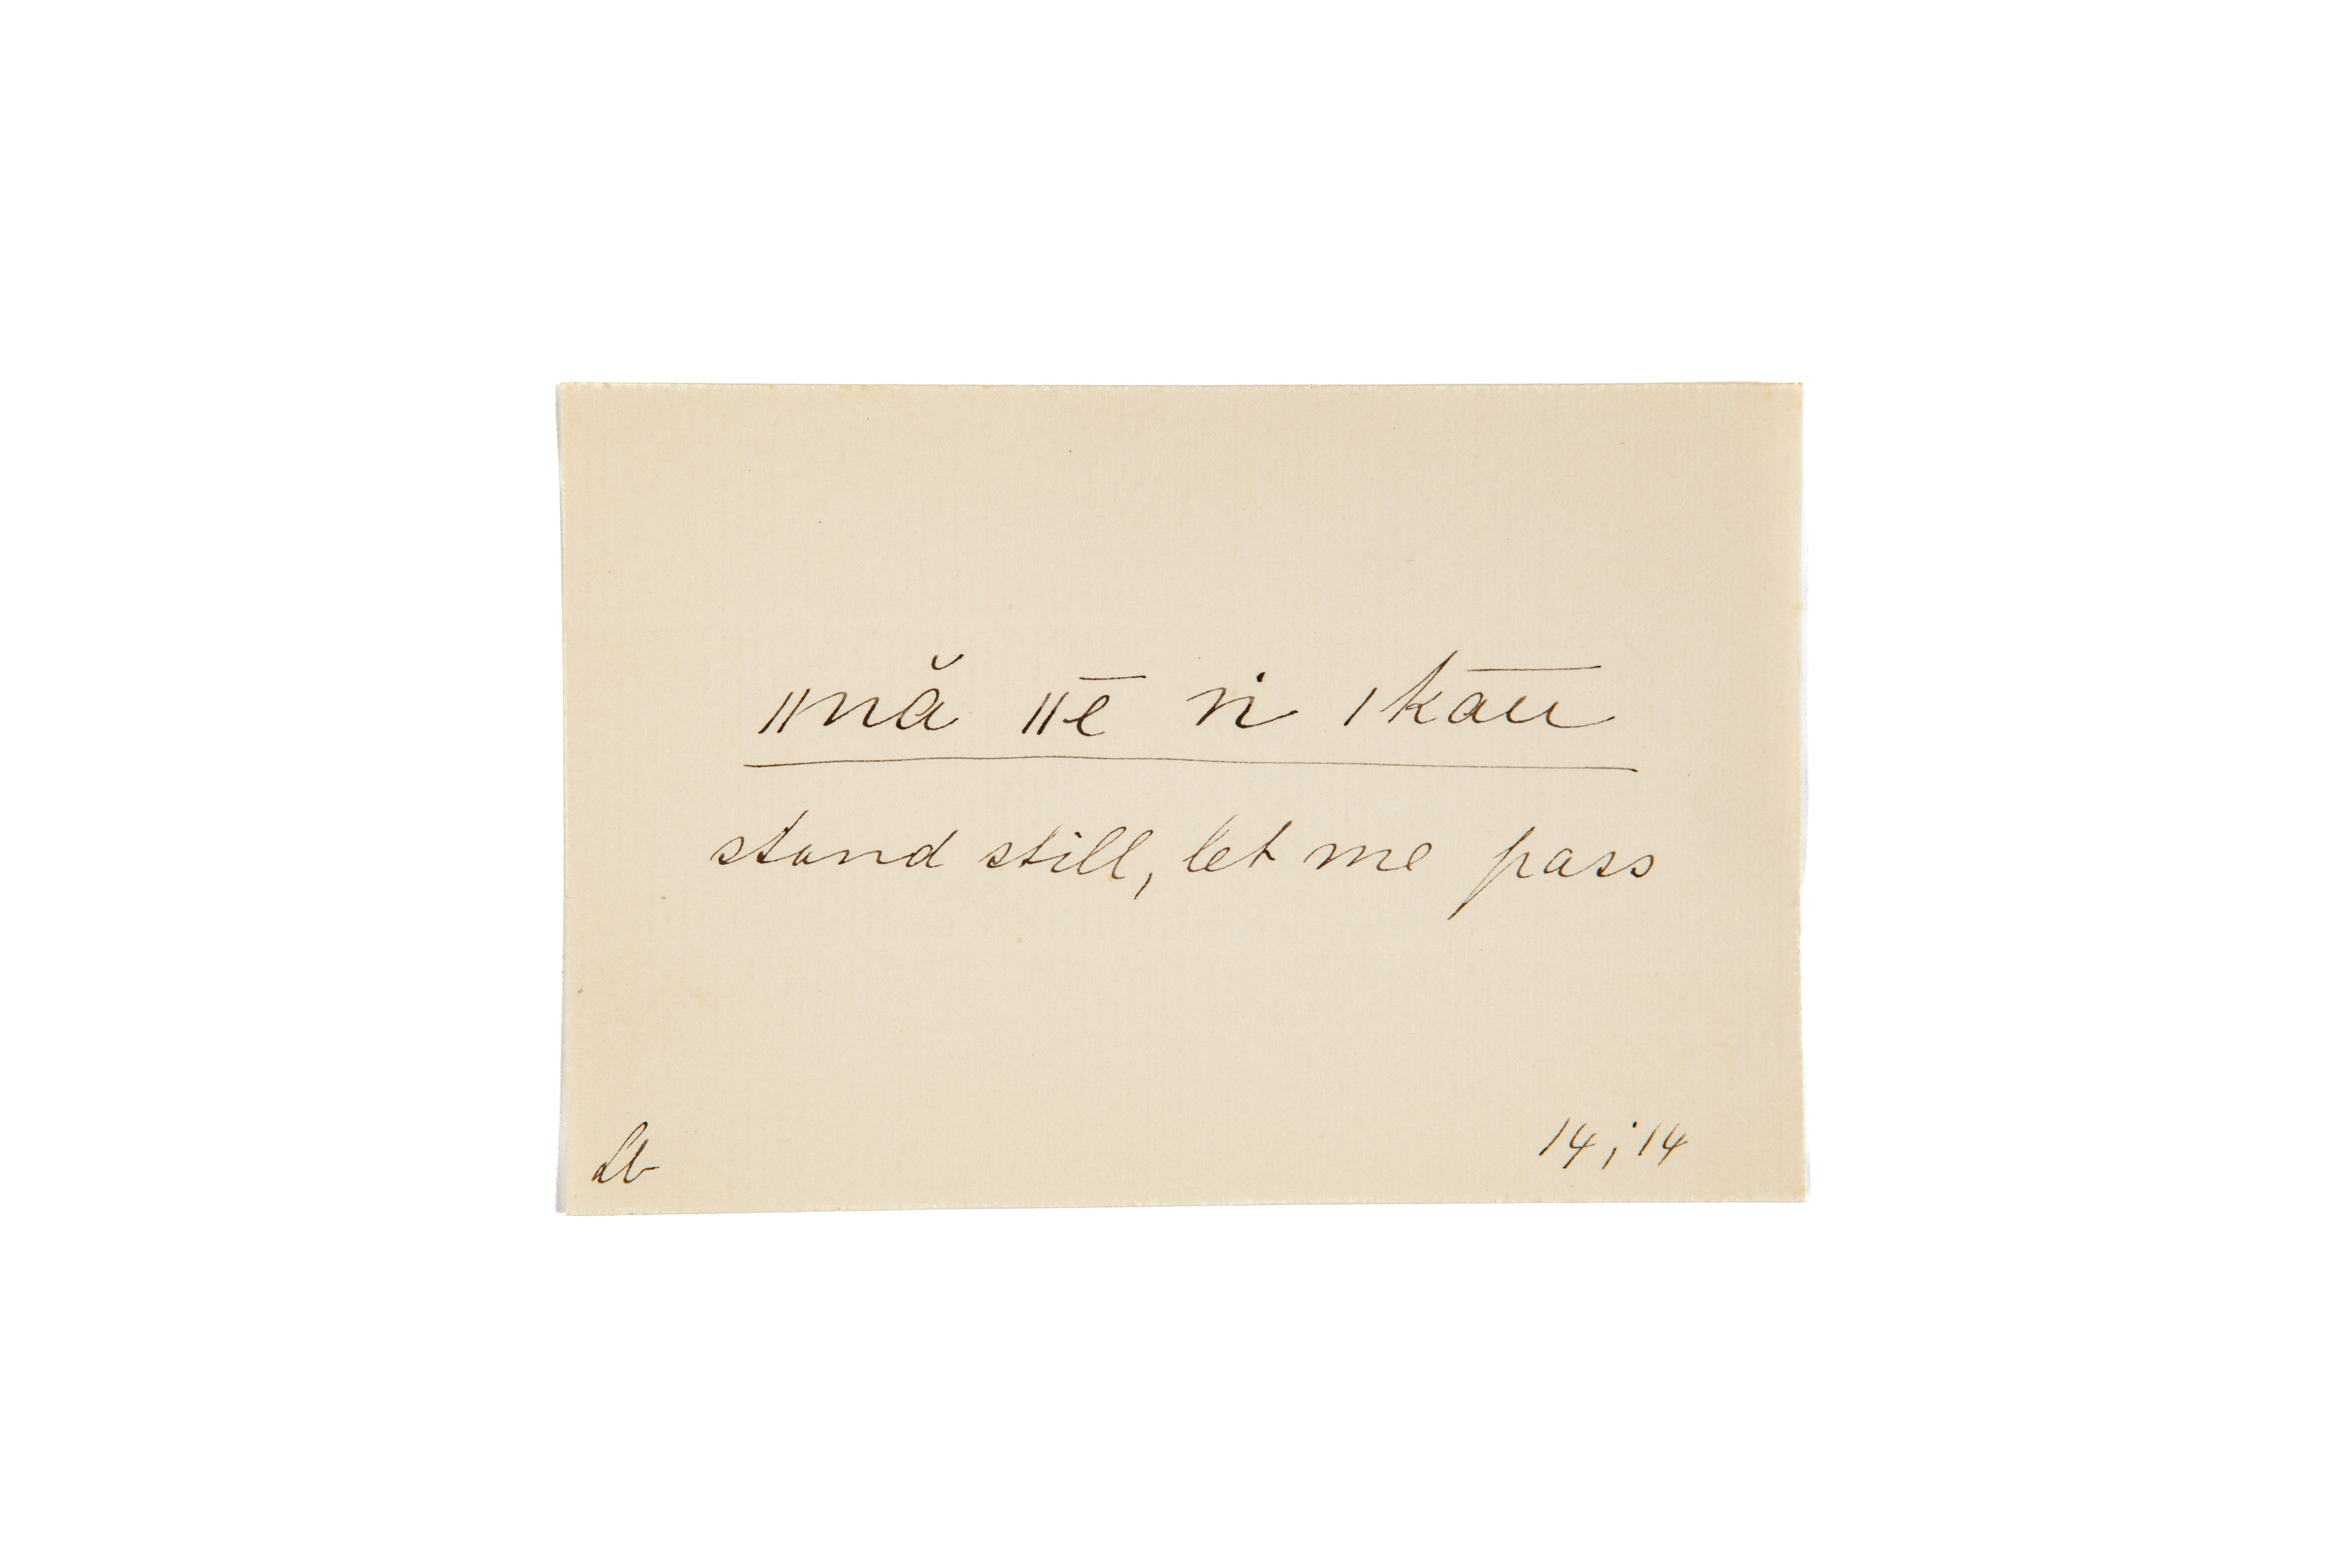 ǁnă ǁē n̍i ǀkā͞u
stand still, let me pass
Lb 14; 14